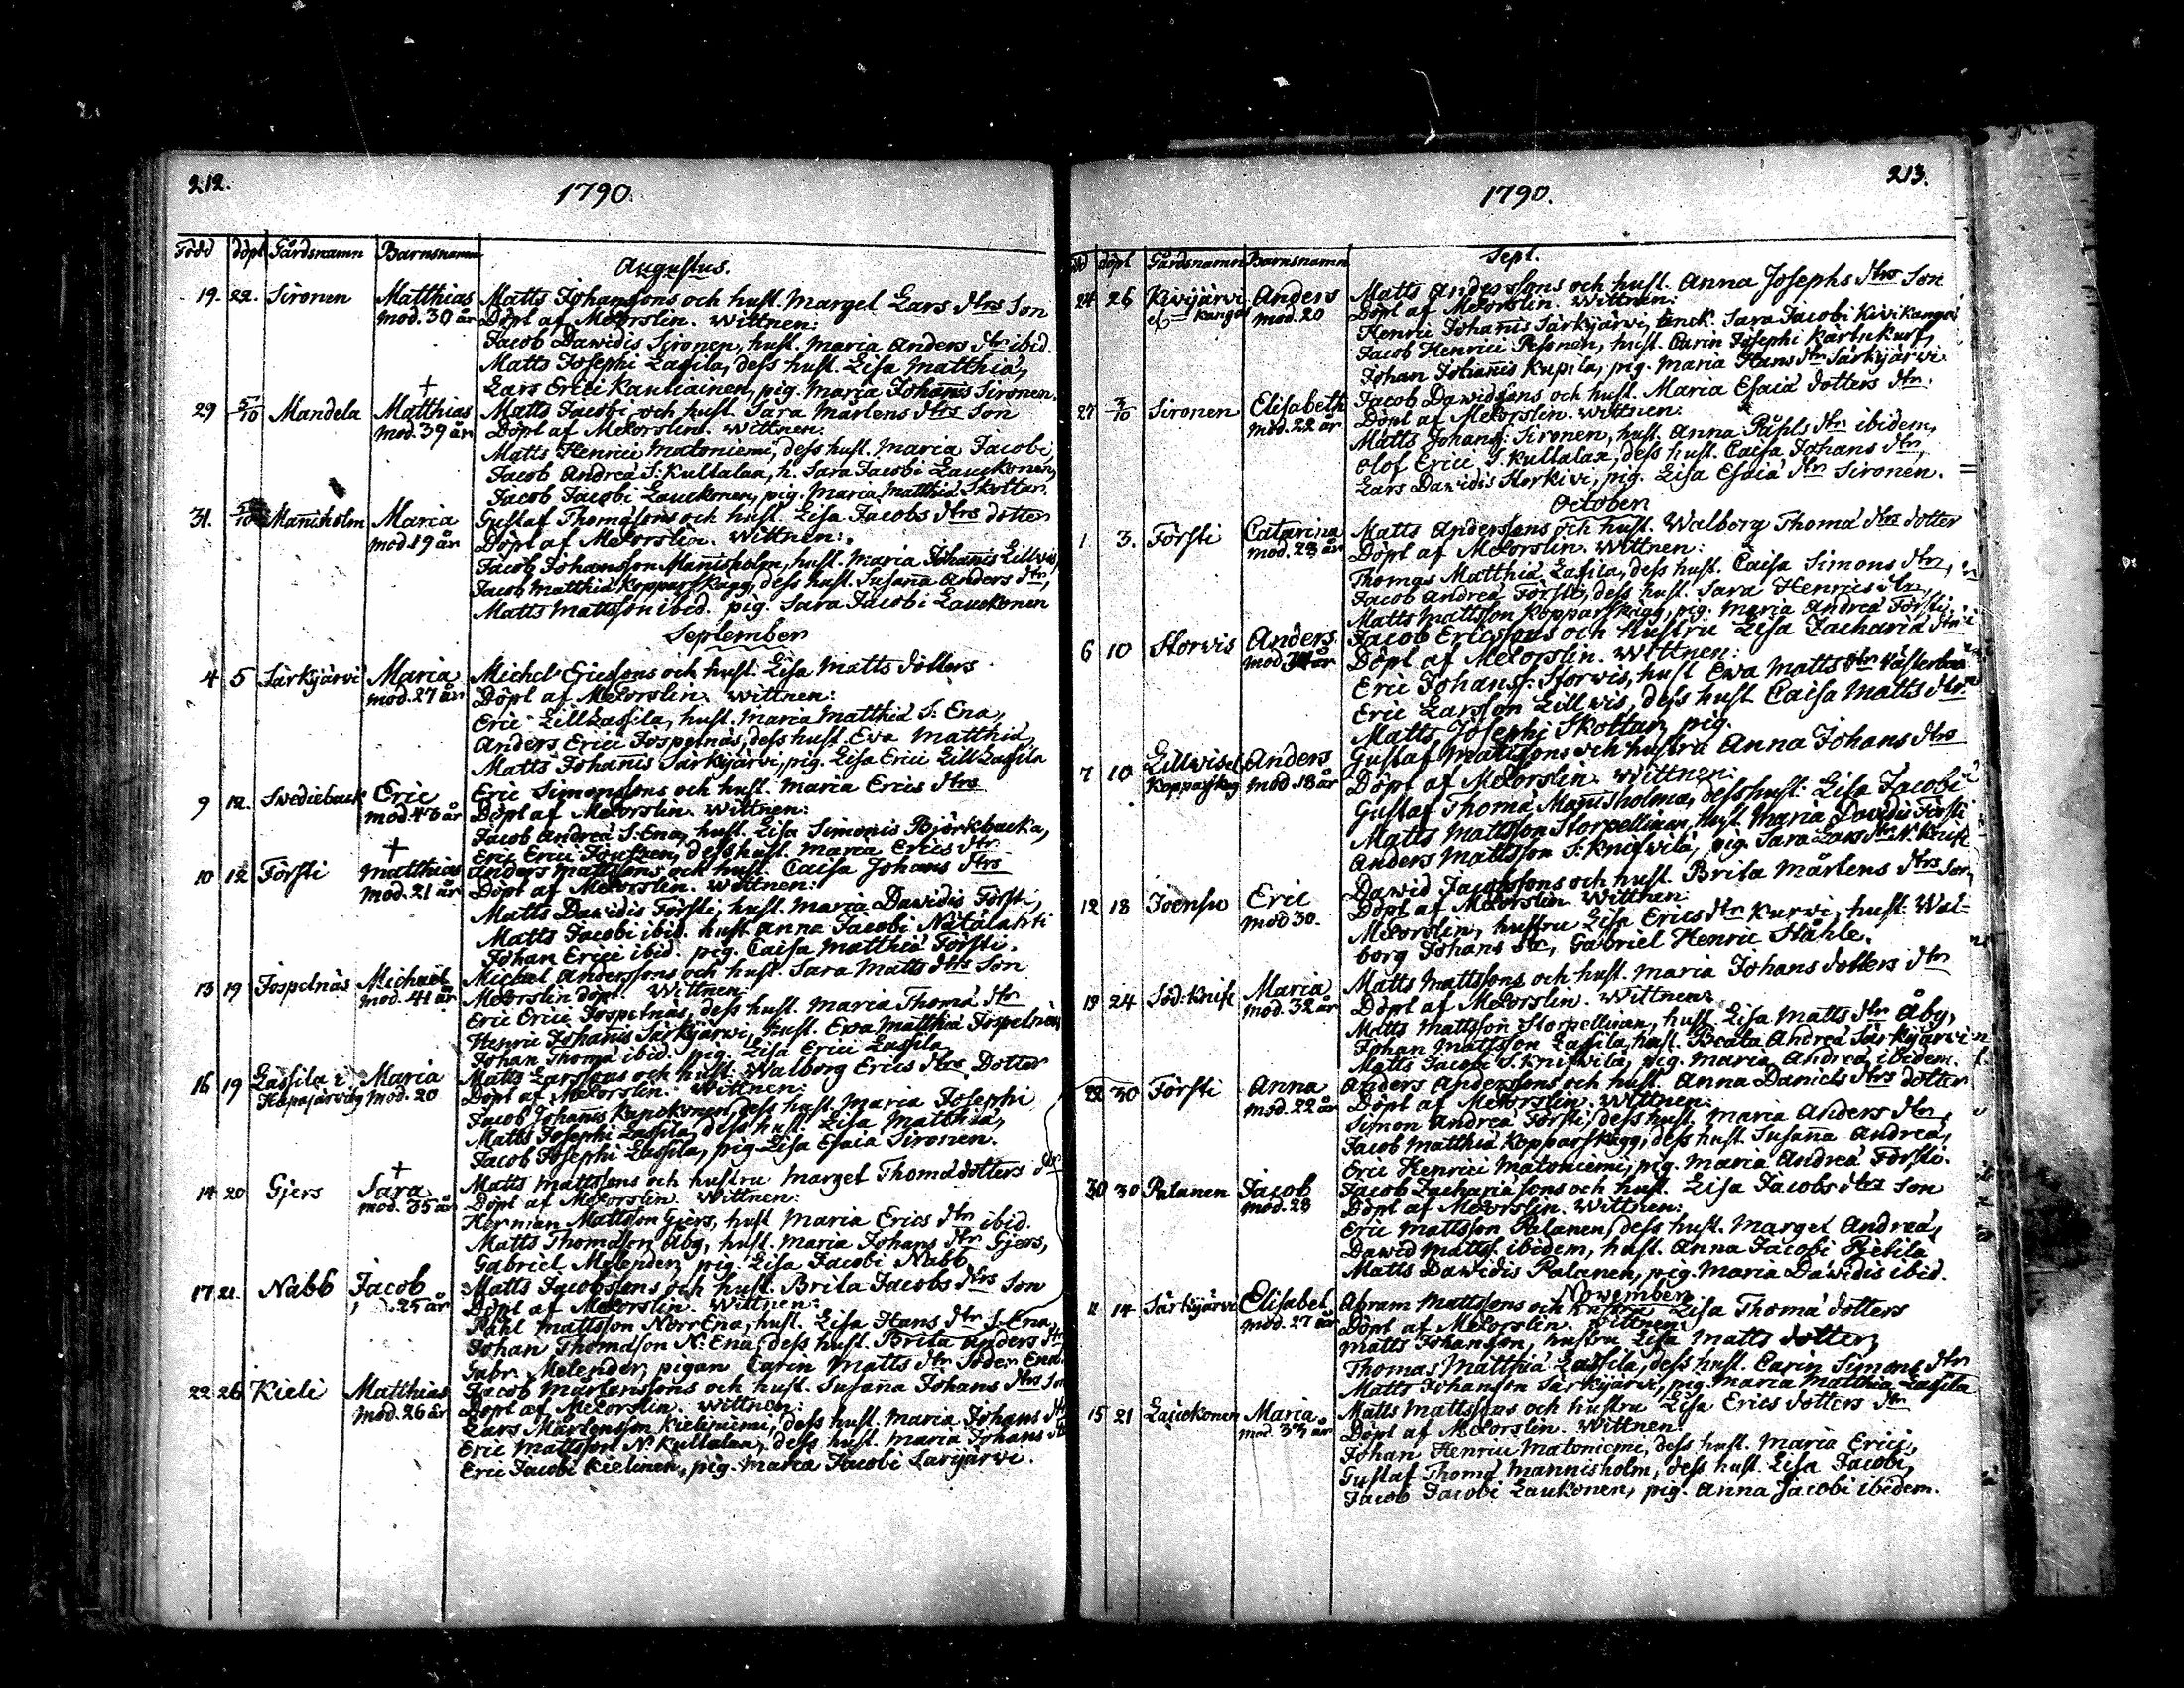 212.
1790.
Född döpt Gårdsnamn Barnsnamn
Augustus.
19. 22. Sironen Matthias Matts Johanssons och hust. Marget Lars dtrs Son
mod. 30 år Döpt af Melorslin. Wittnen:
Jacob Dawidis Sironen, hust. Maria Anders dtr ibid.
Matts Josephi Lassila, dess hust. Lisa Matthiæ,
Lars Erici Kauliainen, pig. Maria Johannis Sironen.
29 5/10 Mandela † Matthias Matts Jacobi och hust Sara Martens dtrs Son
mod. 39 år Döpt af Melorslin. Wittnen:
Matts Henrici Matoniemi, dess hust. Maria Jacobi,
Jacob Andreæ S. Kullalaa, h. Sara Jacobi Lauckonen,
Jacob Jacobi Lauckonen, pig. Maria Matthiæ Skottar.
31. Mannisholm Maria Gustaf Thomæsons och hust. Lisa Jacobs dtrs dotter
mod. 19 år Döpt af Melorslin. Wittnen:
Jacob Johansson Mannisholm, hust. Maria Johannis Lillwis,
Jacob Matthiæ Kopparskägg, dess hust. Susanna Anders dtr,
Matts Mattsson ibid. pig. Sara Jacobi Lauckonen
September
4 5 Särkijärvi Maria Michel Ericssons och hust. Lisa Matts dotters
mod. 27 år Döpt af Melorslin. Wittnen:
Eric Lill Lassila, hust. Maria Matthiæ S. Ena,
Anders Erici Jospelnäs, dess hust. Eva Matthiæ,
Matts Johannis Särkijärvi, pig. Lisa Erici Lill Lassila
9 12. Swedieback Eric Eric Simonssons och hust. Maria Erics dtrs
mod. 46 år Döpt af Melorslin. Wittnen:
Jacob Andreæ S. Ena, hust. Lisa Simonis Björkbacka,
Eric Erici dess hust. Maria Erics dtr
10 12 Försti † Matthias Anders Mattssons och hust. Caisa Johans dtrs
mod. 21 år Döpt af Melorslin. Wittnen:
Matts Dawidis Försti, hust. Maria Dawidis Försti,
Matts Jacobi ibid. hust Anna Jacobi Nätälahti
Johan Erici ibid. pig. Caisa Matthiæ Försti.
13 19 Jospelnäs Michael Michel Anderssons och hust. Sara Matts dtrs Son
mod. 41 år Melorslin döpt. Wittnen:
Eric Erici Jospelnäs, dess hust. Maria Thomæ dtr
Henric Johannis Särkijärvi, hust. Eva Matthiæ Jospelnäs,
Johan Thomæ ibid. pig. Lisa Erici Lassila
16 19 Lassila Maria Matts Larssons och hust. Walborg Erics dtrs Dotter
mod. 20 Döpt af Melorslin. Wittnen:
Jacob Johannis dess hust Maria Josephi
Matts Josephi Lassila dess hust. Lisa Matthiæ,
Jacob Josephi Lassila, pig Lisa Esaiæ Sironen.
14 20 Gjers † Sara Matts Mattssons och hustru Marget Thomæ dotters dtr
mod. 35 år Döpt af Melorslin. Wittnen:
Herman Mattsson Gjers, hust Maria Erics dtr ibid.
Matts Thomæson Åby, hust. Maria Johans dtr Gjers,
Gabriel Melender, pig. Lisa Jacobi Nabb
17 21. Nabb Jacob Matts Jacobssons och hust. Brita Jacobs dtrs Son
25 år Döpt af Melorslin. Wittnen:
Påhl Mattsson Norr Ena, hust. Lisa Hans dtr S. Ena,
Johan Thomæson N. Ena, dess hust. Brita Anders dtr
Gabr. Melender, pigan Carin Matts dtr Söder Ena.
22 26 Kieli Matthias Jacob Martenssons och hust. Susanna Johans dtrs Son
mod. 26 år Döpt af Melorslin. Wittnen:
Lars Mårtensson Kieliniemi, dess hust. Maria Johans dtr
Eric Mattsson N. Kullalaa, dess hust. Maria Johans dtr
Eric Jacobi Kielinen, pig. Maria Jacobi Särkijärvi.
213.
1790.
döpt Gårdsnamn Barnsnamn
Sept.
24 26 Kivijärvi Anders Matts Anderssons och hust. Anna Josephs dtrs Son
mod. 20 Döpt af Melorslin. Wittnen:
Henric Johannis Särkijärvi, enck. Sara Jacobi Kivikangas
Jacob Henrici Pesonen, hust. Carin Josephi
Johan Johannis Kupila, pig. Maria Hans dtr Särkijärvi
27 3/10 Sironen Elisabeth Jacob Dawidsons och hust. Maria Esaiæ dotters dtr.
mod. 22 år Döpt af Melorslin. Wittnen:
Matts Johans: Sironen, hust. Anna Påhls dtr ibidem,
Olof Erici S. Kullalaa, dess hust. Caisa Johans dtr,
Lars Dawidis Storkivi, pig. Lisa Esaiæ dtr Sironen.
October
1 3. Försti Catarina Matts Anderssons och hust. Walborg Thomæ dtrs dotter
mod. 23 år Döpt af Melorslin. Wittnen:
Thomas Matthiæ Lassila, dess hust. Caisa Simons dtr,
Jacob Andreæ Försti, dess hust. Sara Henrics dtr,
Matts Mattsson Kopparskägg, pig. Maria Andreæ Försti.
6 10 Storwis Anders Jacob Ericssons och Hustru Lisa Zachariæ dtr
mod år Döpt af Melorslin. Wittnen:
Eric Johanss. Storwis, hust Ewa Matts dtr
Eric Larsson Lillwis, dess hust Caisa Matts dtr.
Matts Josephi Skottar, pig.
7 10 Lillwis Anders Gustaf Mattssons och hustru Anna Johans dtrs
mod. 18 år Döpt af Melorslin. Wittnen:
Gustaf Thomæ Mannisholma, dess hust: Lisa Jacobi
Matts Mattsson Storpellinen, hust. Maria Dawidis Försti
Anders Mattsson S: Knifwilä, pig. Sara Lars dtr N. Knif
12 18 Joensu Eric Dawid Jacobssons och hust. Brita Mårtens dtrs Son
mod 30. Döpt af Melorslin Wittnen:
Melorslin, hustru Lisa Erics dtr Kurvi, hust. Wal-
borg Johans dtr, Gabriel Henric Ståhle.
19 24 Söd: Knif Maria Matts Mattssons och hust. Maria Johans dotters dtr
mod. 32 år Döpt af Melorslin. Wittnen:
Matts Mattsson Storpellinen, hust. Lisa Matts dtr Åby,
Johan Mattsson Lassila, hust. Beata Andreæ Särkijärvi
Matts Jacobi S. Knifwilä, pig. Maria Andreæ ibidem.
22 30 Försti Anna Anders Anderssons och hust. Anna Daniels dtrs dotter
mod. 22 år Döpt af Melorslin. Wittnen:
Simon Andreæ Försti, dess hust. Maria Anders dtr,
Jacob Matthiæ Kopparskägg, dess hust Susanna Andreæ,
Eric Henrici Matoniemi, pig. Maria Andreæ Försti.
30 30 Palanen Jacob Jacob Zachariæsons och hust. Lisa Jacobs dtrs Son
mod. 28 Döpt af Melorslin. Wittnen:
Eric Mattsson Palanen, dess hust. Marget Andreæ,
Dawid Matts. ibidem, hust. Anna Jacobi Pjetilä
Matts Dawidis Palanen, pig. Maria Dawidis ibid.
November
11 14 Särkijärvi Elisabet Abram Mattssons och hustru Lisa Thomæ dotters
mod. 27 år Döpt af Melorslin. Wittnen:
Matts Johansson, hustru Lisa Matts dotter
Thomas Matthiæ Lassila, dess hust. Carin Simons dtr
Matts Johansson Särkijärvi, pig. Maria Matthiæ Lassila
15 21 Lauckonen Maria Matts Mattssons och hustru Lisa Erics dotters dtr
mod. 33 år Döpt af Melorslin. Wittnen:
Johan Henrici Matoniemi, dess hust. Maria Erici,
Gustaf Thomæ Mannisholm, dess hust. Lisa Jacobi,
Jacob Jacobi Laukonen, pig. Anna Jacobi ibidem.